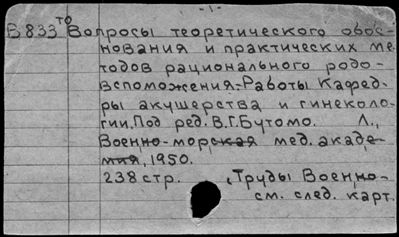 - 1 -
В833 то Вопросы теоретического обос-
нования и практических ме-
тодов рационального родо-
вспоможения.-Работы Кафед-
ры акушерства и гинеколо-
гии. Под ред. В.Г.Бутомо. Л.,
Военно-морская мед. акаде-
мия, 1950.
238 стр. „Труды Военно-
см. след. карт.